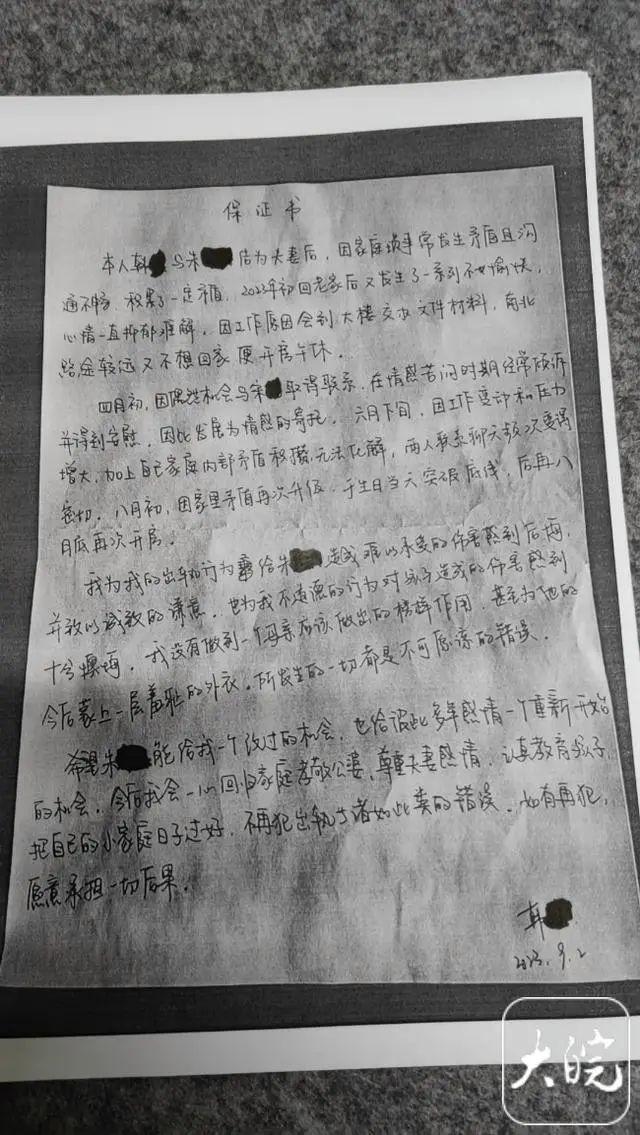 保证书
本人韩 与朱 结为夫妻后,因家庭琐事常发生矛盾且沟
通不畅,积累了一定矛盾,2023年初回老家后又发生了一系列不愉快,
心情一直抑郁难解,因工作原因会到大楼交办文件材料,南北
路途较远又不想回家便开房午休。
四月初,因偶然机会与朱 取得联系,在情感苦闷时期经常倾诉
并得到安慰,因此发展为情感的寄托。六月下旬,因工作变动和压力
增大,加上自己家庭内部矛盾积攒,无法化解,两人联系聊天频次变得
密切,八月初,因家里矛盾再次升级,于生日当天突破底线,后再八
月底再次开房。
我为我的出轨行为 给朱 造成难以承受的伤害感到后悔,
并致以诚挚的歉意,也为我不道德的行为对孩子造成的伤害感到
十分懊悔,我没有做到一个母亲应该做出的榜样作用,甚至为他的
今后蒙上一层羞耻的外衣,所发生的一切都是不可原谅的错误。
希望朱 能给我一个改过的机会,也给彼此多年感情一个重新开始
的机会,今后我会一心回归家庭孝敬公婆,尊重夫妻感情,认真教育孩子,
把自己的小家庭日子过好,不再犯出轨诸如此类的错误,如有再犯,
愿意承担一切后果。
韩
2023.9.2
大皖